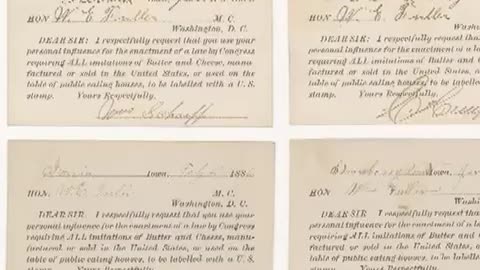 HON W. E. Fuller M. C.
Washington, D. C.
DEAR SIR: I respectfully request that you use your
personal influence for the enactment of a law by Congress
requiring ALL imitations of Butter and Cheese, manu-
factured or sold in the United States, or used on the
table of public eating houses, to be labelled with a U. S.
stamp. Yours Respectfully,
HON W. E. Fuller M. C.
Washington
DEAR SIR: I respectfully request that you use
personal influence for the enactment of a law by
requiring ALL imitations of Butter and Cheese
factured or sold in the United States, or used
table of public eating houses, to be labelled with
stamp. Yours Respectfully,
Iowa, 188
HON. M. C.
Washington, D. C.
DEAR SIR: I respectfully request that you use your
personal influence for the enactment of a law by Congress
requiring ALL imitations of Butter and Cheese, manu-
factured or sold in the United States, or used on the
table of public eating houses, to be labelled with a U. S.
stamp. Yours Respectfully
Iowa,
HON Fuller
DEAR SIR I respectfully request that you use
personal influence for the enactment of a law by
requiring ALL imitations of Butter and Cheese
factured or sold in the United States, or used
table of public eating houses, to be labelled with
stamp. Yours Respectfully